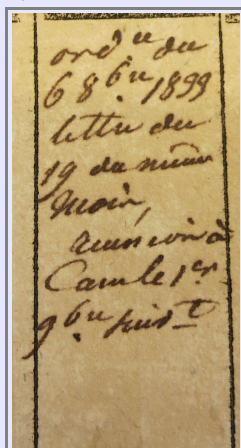 ord^ce du
6 8^bre 1833
lettre du
19 du même
mois,
à
Caen le 1^er
9^bre suiv^t